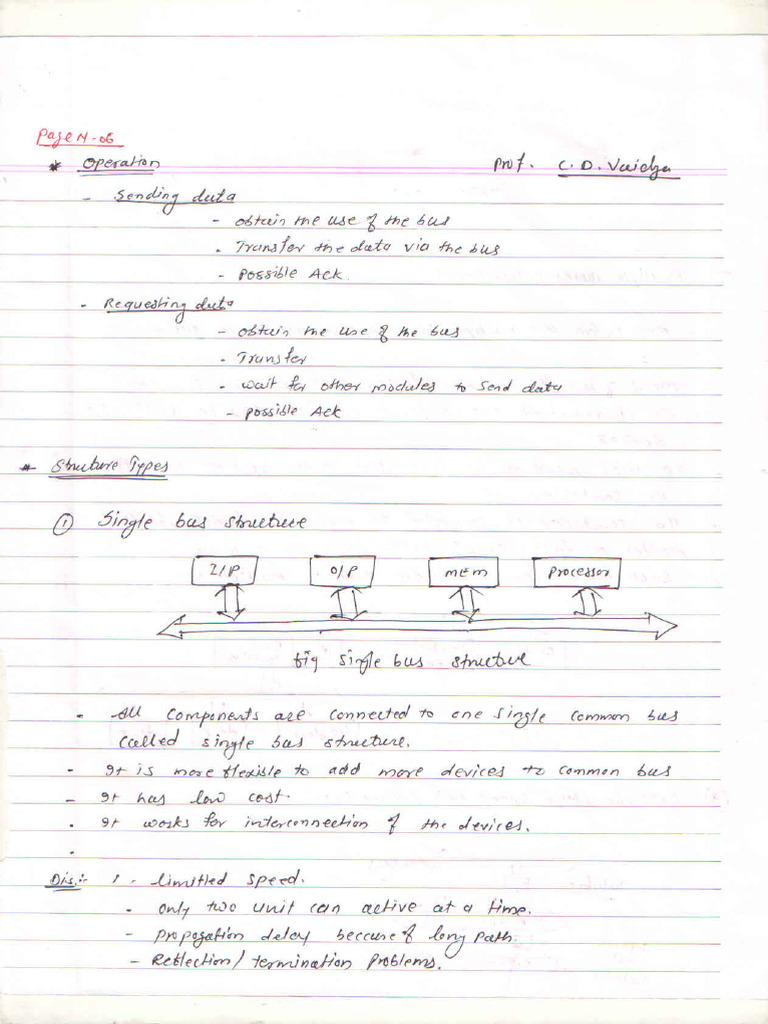 Page N-06
* Operation Prof. C.D. Vaidya
- Sending data
- obtain the use of the bus
- Transfer the data via the bus
- Possible Ack.
- Requesting data
- obtain the use of the bus
- Transfer
- wait for other modules to send data
- possible Ack
* Struture Types
① Single bus structure
I/P O/P MEM Processor
fig single bus structure
- All components are connected to one single common bus
called single bus structure.
- It is more flexible to add more devices to common bus
- It has low cost.
- It works for interconnection of the devices.
Dis:- 1 - limitled speed.
- only two unit can active at a time.
- propogation delay beccuse of long path.
- Reflection/termination problems.